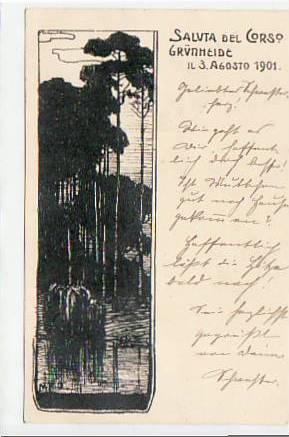 SALUTA DEL CORSO
GRÜNHEIDE
IL 3. AGOSTO 1901.
Geliebtes Schwester-
herz!
Wie geht es
Dir, hoffent-
lich doch besser!
Ist Muttchen
gut nach Hause
gekommen?
Hoffentlich
läßt die Hitze
bald nach!
Sei herzlichst
gegrüßt
von Deiner
Schwester.